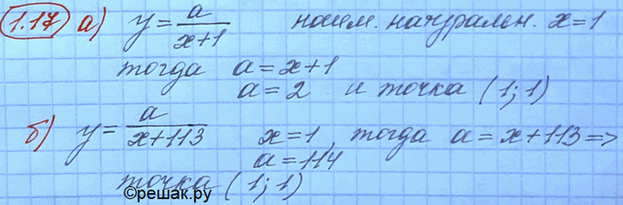 1.17 а) y = a/(x+1) наим. натуральн. x=1
тогда a=x+1
a=2 и точка (1;1)
б) y = a/(x+113) x=1, тогда a=x+113=>
a=114
точка (1;1)
©решак.ру